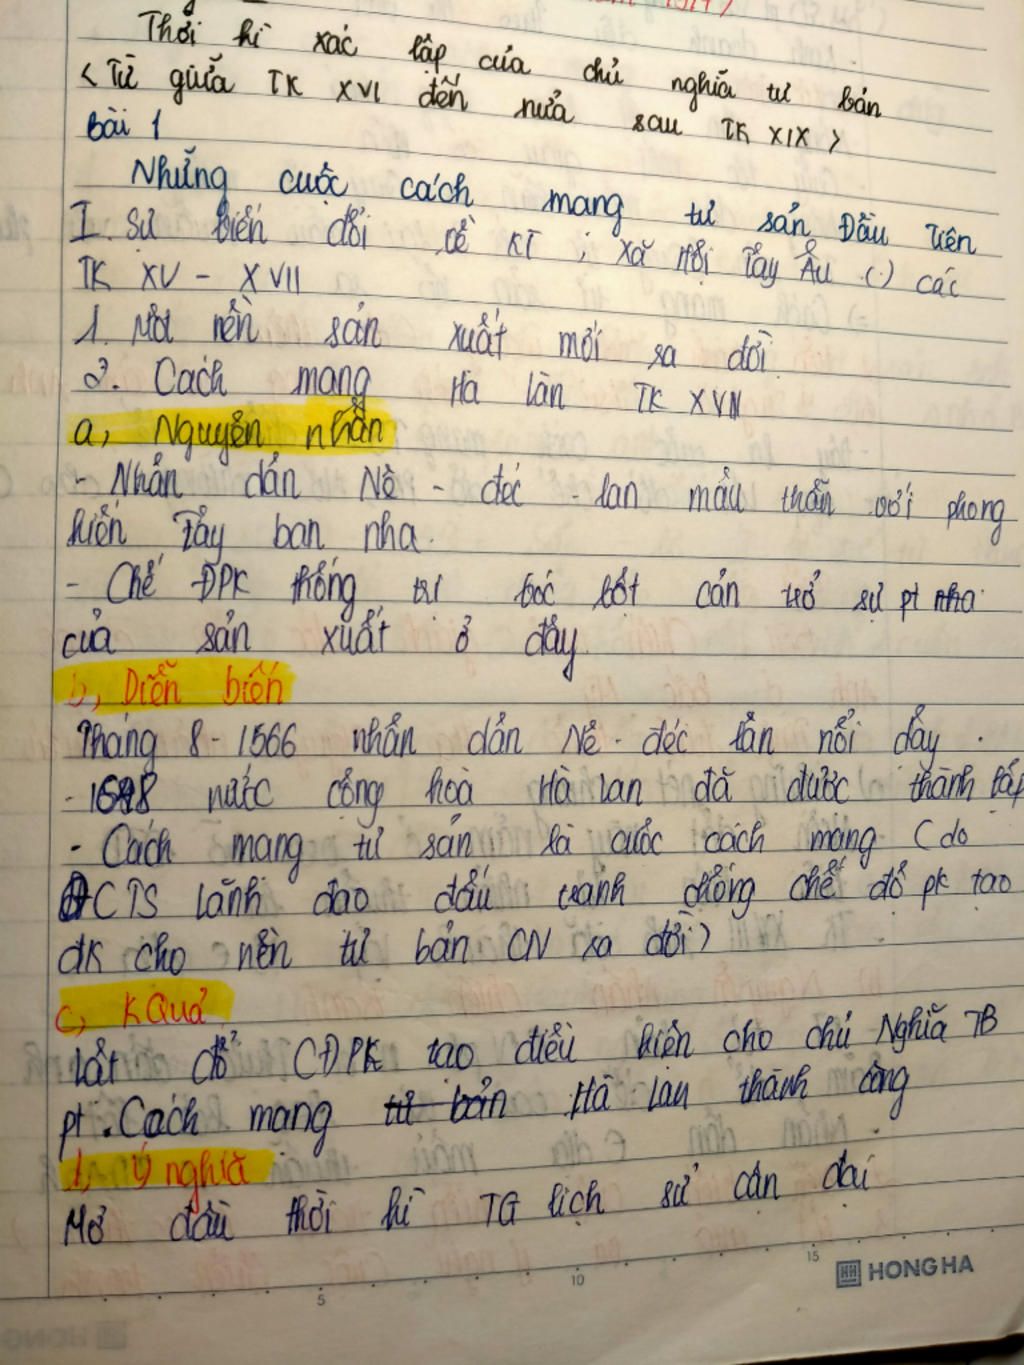 Thời kì xác lập của chủ nghĩa tư bản
< Từ giữa TK XVI đến nửa sau TK XIX >
Bài 1
Những cuộc cách mạng tư sản Đầu tiên
I. Sự biến đổi về KT ; xã Hội Tây Âu (.) các
TK XV - XVII
1. Một nền sản xuất mới ra đời
2. Cách mạng Hà lan TK XVII
a, Nguyên nhân
- Nhân dân Nê - đéc - lan mâu thẫn với phong
kiến Tây ban nha.
- Chế ĐPK thống trị bóc lột cản trở sự pt
của sản xuất ở đây
b, Diễn biến
Tháng 8 - 1566 nhân dân Nê - déc lan nổi dậy .
- 1648 nước cộng hoà Hà lan đã được thành lập
- Cách mạng tư sản là cuộc cách mạng ( do
CTS lãnh đạo đấu tranh chống chế độ pk tạo
đk cho nền tư bản CN ra đời )
c, KQuả
Lật đổ CĐPK tạo điều kiện cho chủ Nghĩa TB
pt . Cách mạng tư bản Hà lan thành công
d, ý nghĩa
Mở đầu thời kì TG lịch sử cận đại
5 10 15
HONG HA